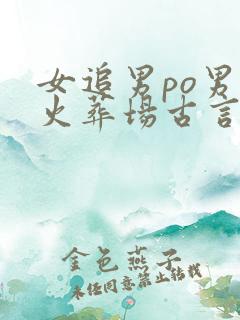 女追男po男
火葬场古言
金色燕子
未经同意禁止转载